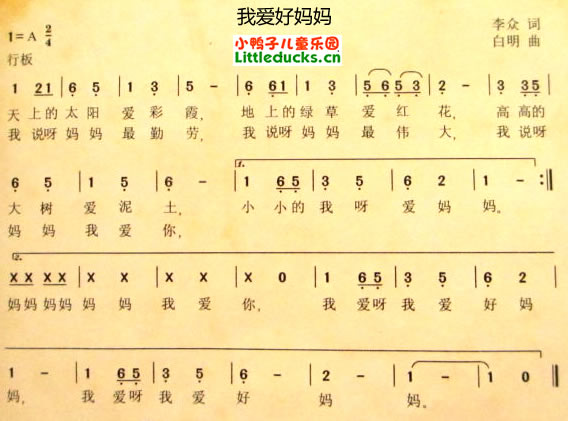 我爱好妈妈
1=A 2/4
李众 词
小鸭子儿童乐园
行板
白明 曲
Littleducks.cn
1 21 | 6 5 | 1 3 | 5 - | 6 61 | 3 5 | 5 6 5 3 | 2 - | 3 35 |
天上的太阳 爱彩霞, 地上的绿草 爱红花, 高高的
我说呀妈妈 最勤劳, 我说呀妈妈 最伟大, 我说呀
1.
6 5 | 1 5 | 6 - | 1 65 | 3 5 | 6 2 | 1 - :||
大树 爱泥土, 小小的我呀 爱妈妈。
妈妈 我爱你,
2.
X X X X | X X | X X | X - | X 0 | 1 65 | 3 5 | 6 2 |
妈妈妈妈 妈妈 我爱 你, 我爱呀我爱 好妈
1 - | 1 65 | 3 5 | 6 - | 2 - | 1 - | 1 0 ||
妈, 我爱呀我爱 好 妈 妈。